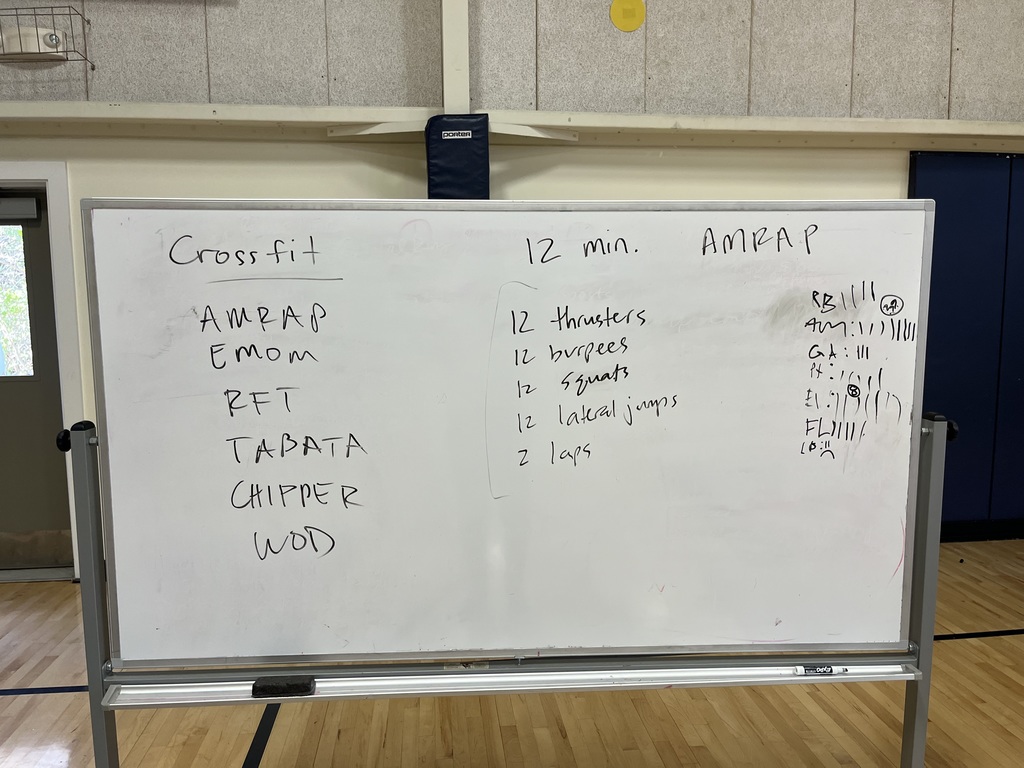 PORTER
Crossfit
AMRAP
EMOM
RFT
TABATA
CHIPPER
WOD
12 min. AMRAP
12 thrusters
12 burpees
12 squats
12 lateral jumps
2 laps
RB
GA:
FL
EXPO